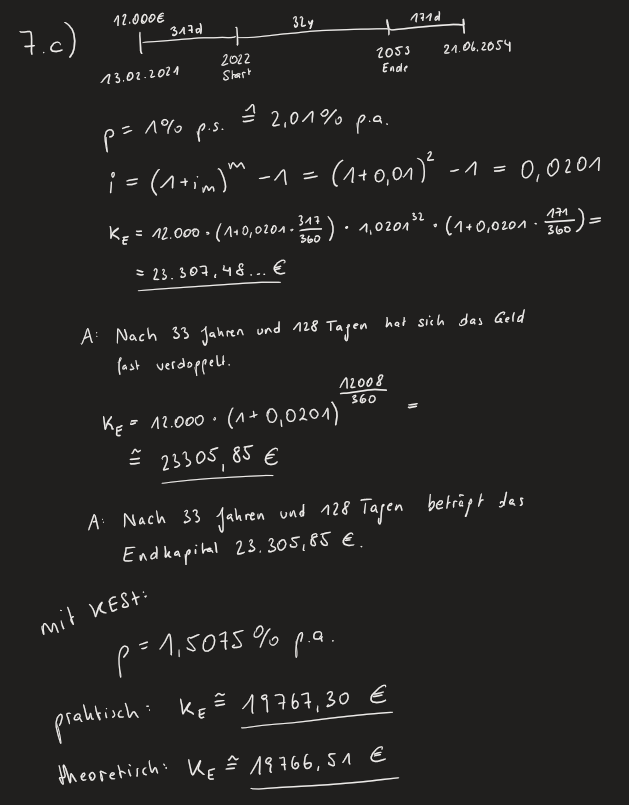 7.c)
12.000€ 317d 32y 171d
13.02.2021 2022 Start 2053 Ende 21.06.2054
p = 1% p.s. ≙ 2,01% p.a.
i = (1+i_m)^m - 1 = (1+0,01)^2 - 1 = 0,0201
K_E = 12.000 · (1+0,0201 · 317/360) · 1,0201^32 · (1+0,0201 · 171/360) =
= 23.307,48... €
A: Nach 33 Jahren und 128 Tagen hat sich das Geld
fast verdoppelt.
K_E = 12.000 · (1 + 0,0201)^(12008/360) =
≅ 23305,85 €
A: Nach 33 Jahren und 128 Tagen beträgt das
Endkapital 23.305,85 €.
mit KESt:
p = 1,5075% p.a.
praktisch: K_E ≅ 19767,30 €
theoretisch: K_E ≅ 19766,51 €